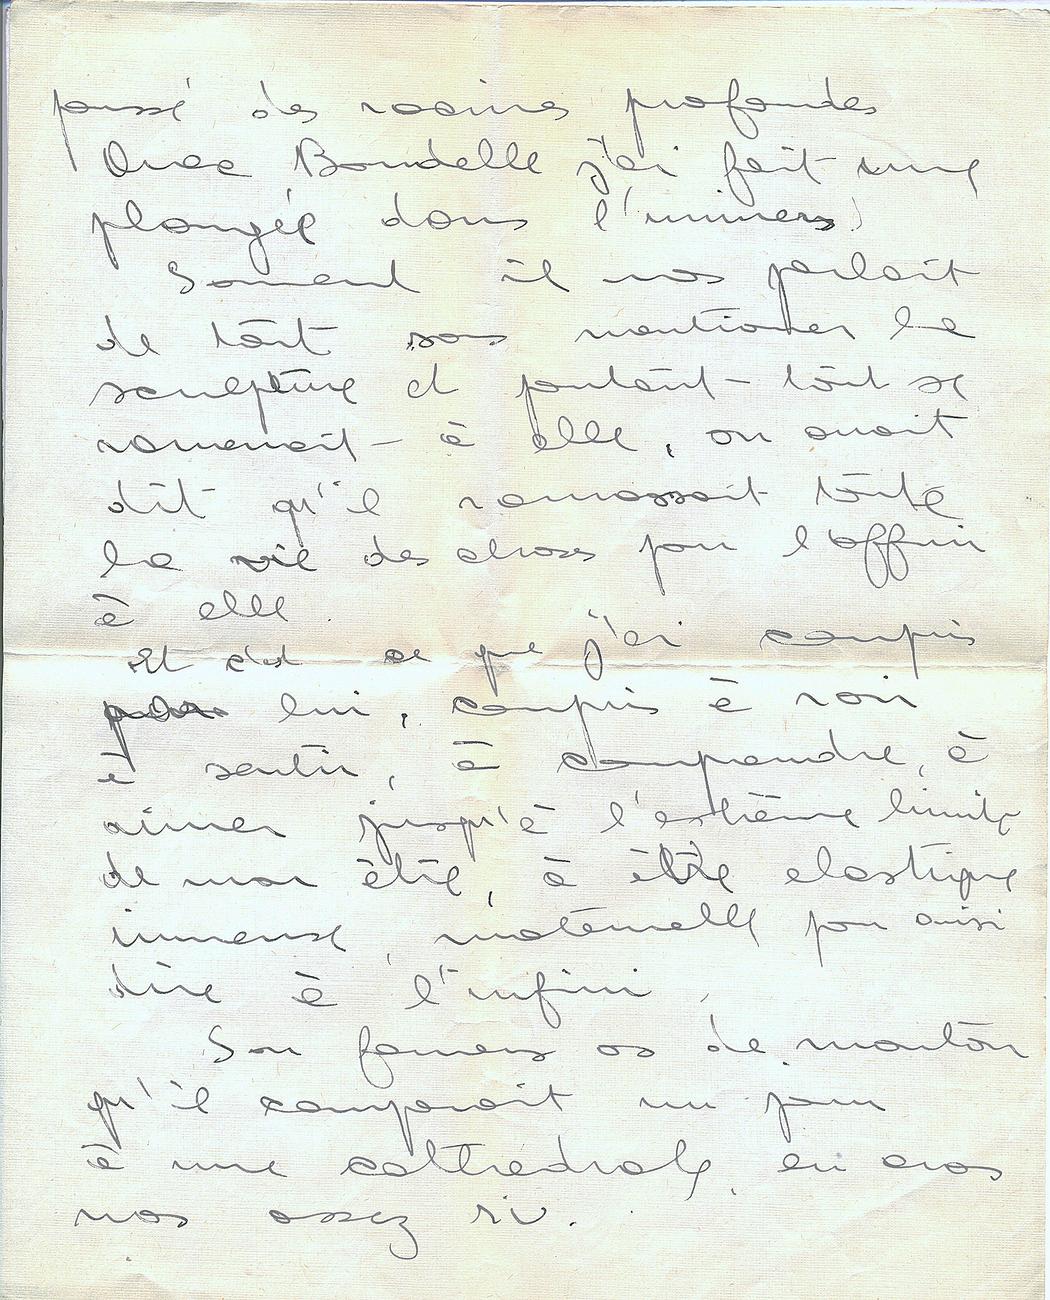 poussé des racines profondes
Avec Bourdelle j'ai fait une
plongée dans l'univers
Souvent il nous parlait
de tout sans mentionner la
sculpture et pourtant - tout se
ramenait - à elle, on aurait
dit qu'il ramassait toute
la vie des choses pour l'offrir
à elle.
Et c'est ce que j'ai compris
lui, compris à voir
à sentir, à comprendre, à
aimer jusqu'à l'extrême limite
de mon être, à être elastique
immense maternelle pour ainsi
dire à l'infini.
Son fameux os de mouton
qu'il comparait un jour
à une cathédrale, en avons
nous assez ri.